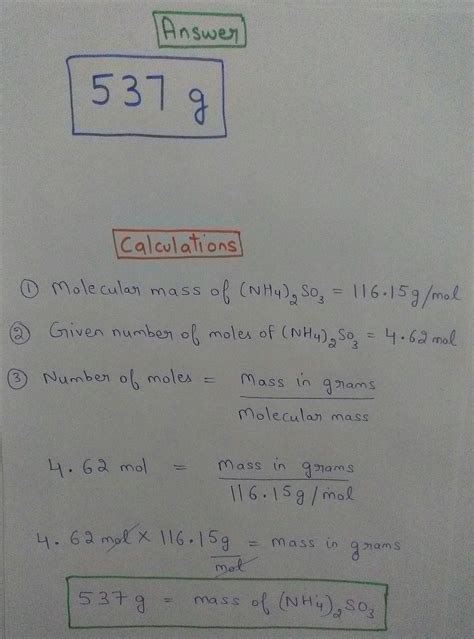 Answer
537 g
Calculations
① Molecular mass of (NH4)₂SO₃ = 116.15g/mol
② Given number of moles of (NH4)₂SO₃ = 4.62 mol
③ Number of moles = Mass in grams
Molecular mass
4.62 mol = mass in grams
116.15g/mol
4.62 mol × 116.15g = mass in grams
mol
537g = mass of (NH4)₂SO₃